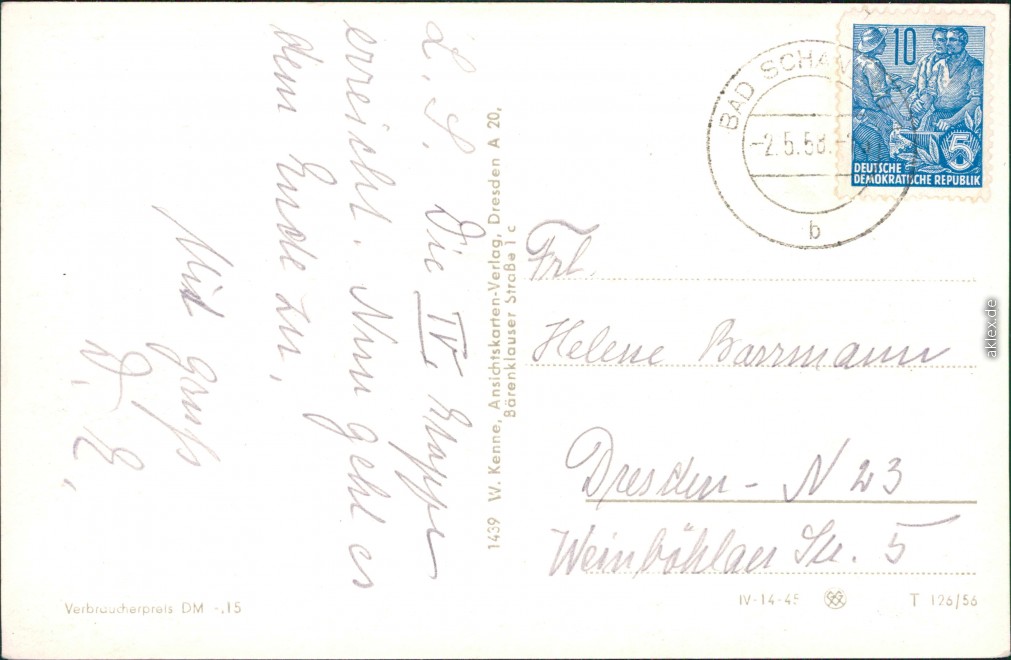 L. S. Die IV. Etappe
erreicht. Nun geht es
dem Ende zu,
Mit Gruß
E.
1439 W. Kenne, Ansichtskarten-Verlag, Dresden A 20,
Bärenklauser Straße 1 c
10
5
DEUTSCHE
DEMOKRATISCHE REPUBLIK
BAD SCHAN
-2.5.58.-
b
Frl.
Helene Barrmann
Dresden - N 23
Weinböhlaer Str. 5
Verbraucherpreis DM -,15
IV-14-45
T 126/56
aklex.de